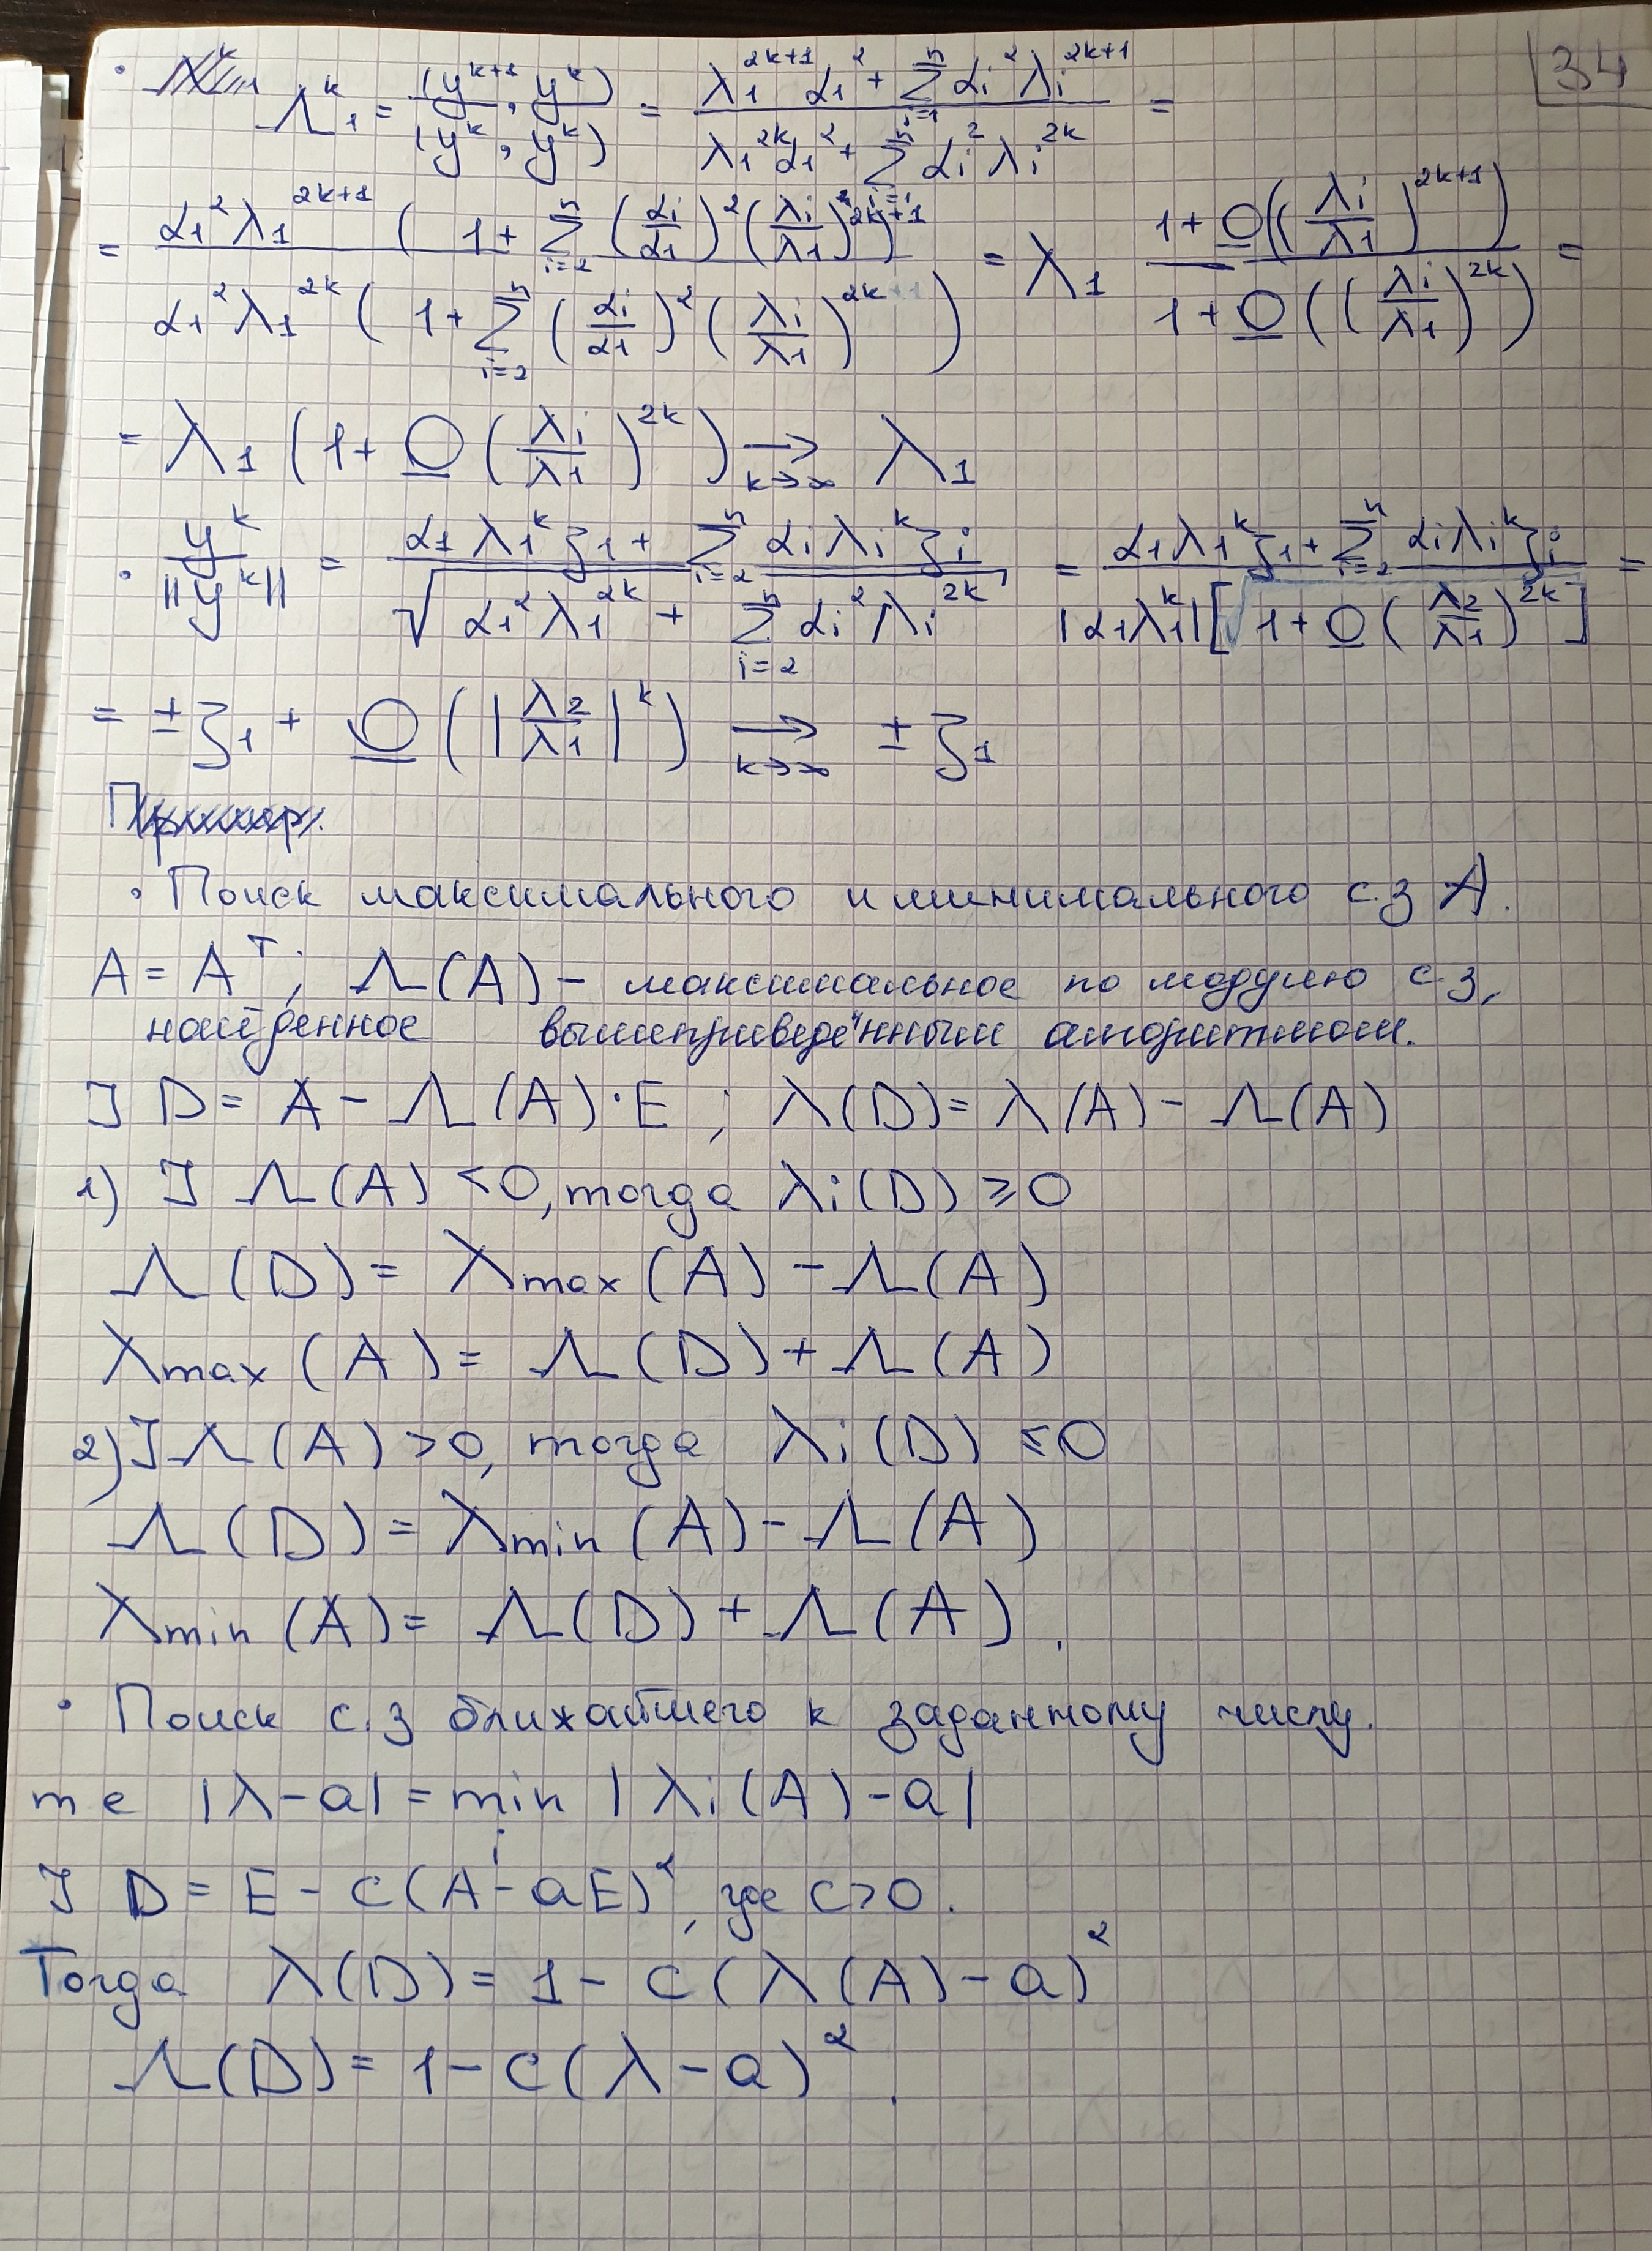 34
Λ₁ᵏ = (yᵏ⁺¹, yᵏ) / (yᵏ, yᵏ) = (λ₁²ᵏ⁺¹ α₁² + Σᵢ₌₁ⁿ αᵢ² λᵢ²ᵏ⁺¹) / (λ₁²ᵏ α₁² + Σᵢ₌ᵢⁿ αᵢ² λᵢ²ᵏ) =
= (α₁² λ₁²ᵏ⁺¹ (1 + Σᵢ₌₂ⁿ (αᵢ/α₁)² (λᵢ/λ₁)²ᵏ⁺¹)) / (α₁² λ₁²ᵏ (1 + Σᵢ₌₂ⁿ (αᵢ/α₁)² (λᵢ/λ₁)²ᵏ)) = λ₁ (1 + O((λᵢ/λ₁)²ᵏ⁺¹)) / (1 + O((λᵢ/λ₁)²ᵏ)) =
= λ₁ (1 + O(λᵢ/λ₁)²ᵏ) → k→∞ λ₁
· yᵏ/||yᵏ|| = (α₁ λ₁ᵏ ξ₁ + Σᵢ₌₂ⁿ αᵢ λᵢᵏ ξᵢ) / √(α₁² λ₁²ᵏ + Σᵢ₌₂ⁿ αᵢ² λᵢ²ᵏ) = (α₁ λ₁ᵏ ξ₁ + Σᵢ₌₂ⁿ αᵢ λᵢᵏ ξᵢ) / (|α₁ λ₁ᵏ| [√(1 + O(λ₂/λ₁)²ᵏ)]) =
= ± ξ₁ + O(|λ₂/λ₁|ᵏ) → k→∞ ± ξ₁
· Поиск максимального и минимального с.з А.
A = Aᵀ; Λ(A) – максимальное по модулю с.з,
найденное вышеприведённым алгоритмом.
J D = A - Λ(A)·E ; λ(D) = λ(A) - Λ(A)
1) J Λ(A) < 0, тогда λᵢ(D) ≥ 0
Λ(D) = λmax(A) - Λ(A)
λmax(A) = Λ(D) + Λ(A)
2) J Λ(A) > 0, тогда λᵢ(D) ≤ 0
Λ(D) = λmin(A) - Λ(A)
λmin(A) = Λ(D) + Λ(A).
· Поиск с.з ближайшего к заданному числу.
т е |λ-a| = min i |λᵢ(A) - a|
J D = E - c(A - aE)², где c > 0.
Тогда λ(D) = 1 - c(λ(A) - a)²
Λ(D) = 1 - c(λ - a)².